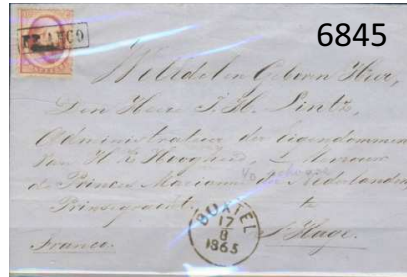 6845
FRANCO
Weledelen Geboren Heer,
Den Heer T. H. Lintz,
Administrateur der eigendommen
Van H. K. Hoogheid,
de Prinses Marianne der Nederlanden
Prinsegracht, te
s'Hage.
Franco.
BOXTEL
17
8
1865